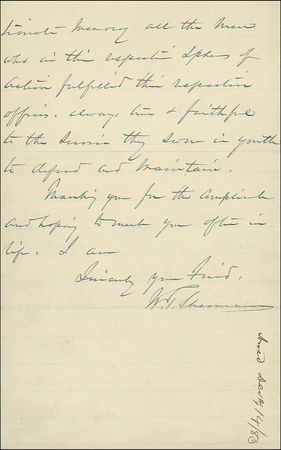 tionate Memory all the men
who in their respective Spheres of
Action fulfilled their respective
offices. always true & faithful
to the Service they swore in youth
to defend and maintain.
Thanking you for the compliment
and hoping to meet you often in
life. I am
Sincerely your Friend.
W.T. Sherman
14/83